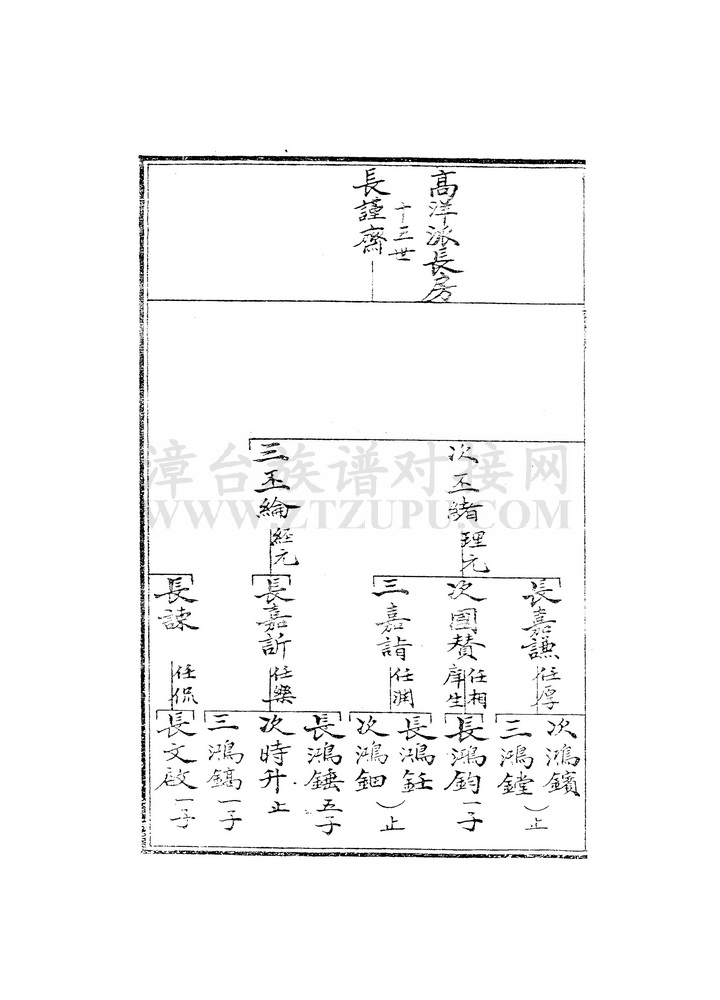 高洋派長房
十三世
長謹齋
次丕緒
理元
三丕綸
經元
長嘉謙
任厚
次國賛
任相
庠生
三嘉詣
任潤
長嘉訢
任樂
長諫
任侃
次鴻鑌
三鴻鏜
止
長鴻鈞一子
長鴻鈺
次鴻錮
止
長鴻錘五子
次時升止
三鴻鎬一子
長文啟一子
漳台族谱对接网
WWW.ZTZUPU.COM